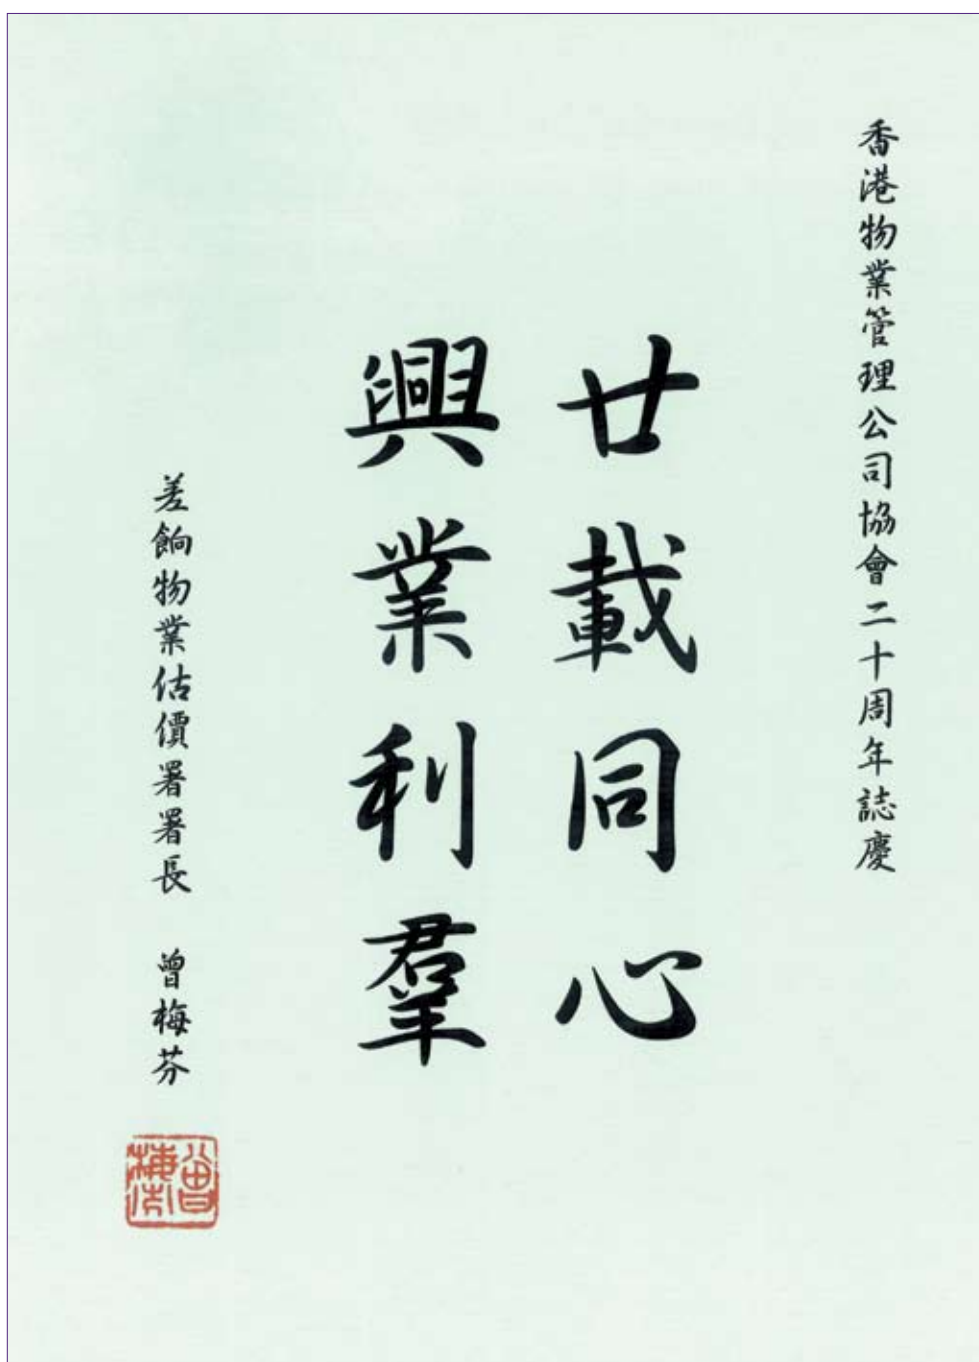 香港物業管理公司協會二十周年誌慶
廿載同心
興業利羣
差餉物業估價署署長　曾梅芬
曾梅芬